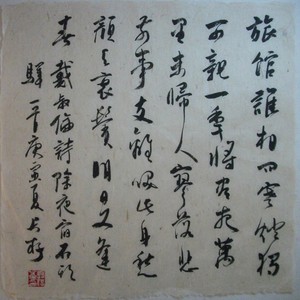 旅館誰相問寒燈獨
可親一年將盡夜萬
里未歸人寥落悲
前事支離笑此身愁
顏與衰鬢明日又逢
春戴叔倫詩除夜宿石頭
驛庚寅夏